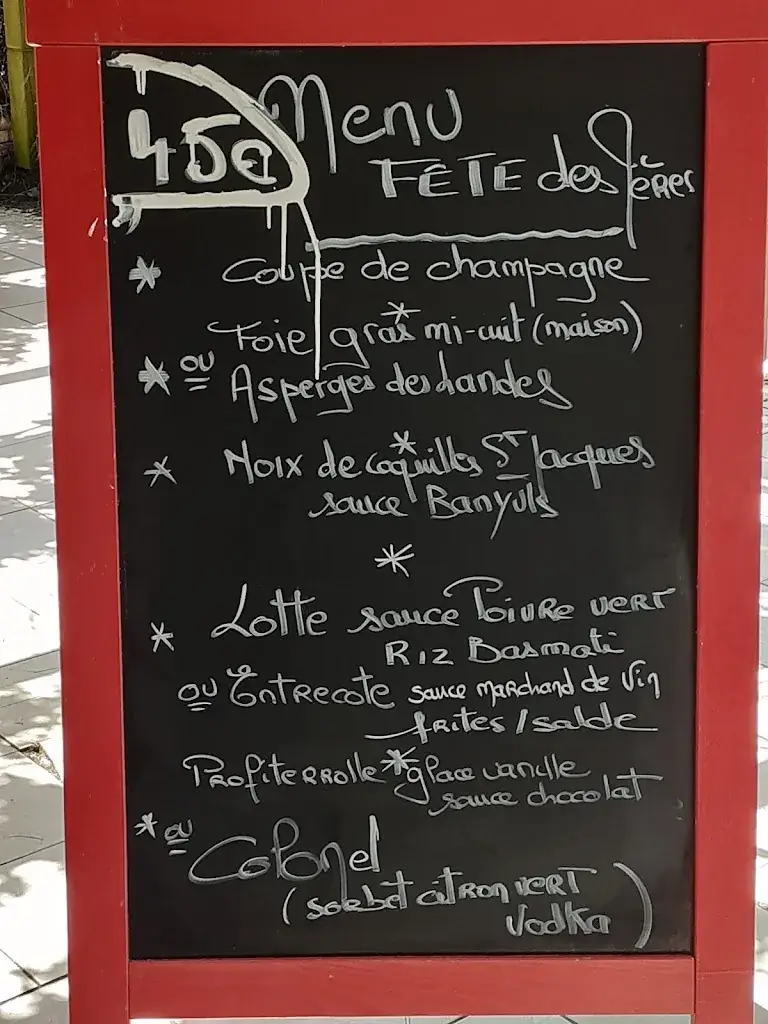 45€
Menu
FÊTE des Pères
* Coupe de champagne
*
Foie gras mi-cuit (maison)
* ou
Asperges des Landes
*
* Noix de coquilles ST Jacques
sauce Banyuls
*
Lotte sauce Poivre vert
* Riz Basmati
ou Entrecote sauce marchand de Vin
frites / salde
*
Profiterrolle glace vanille
sauce chocolat
* ou
Colonel
(sorbet citron vert
Vodka)